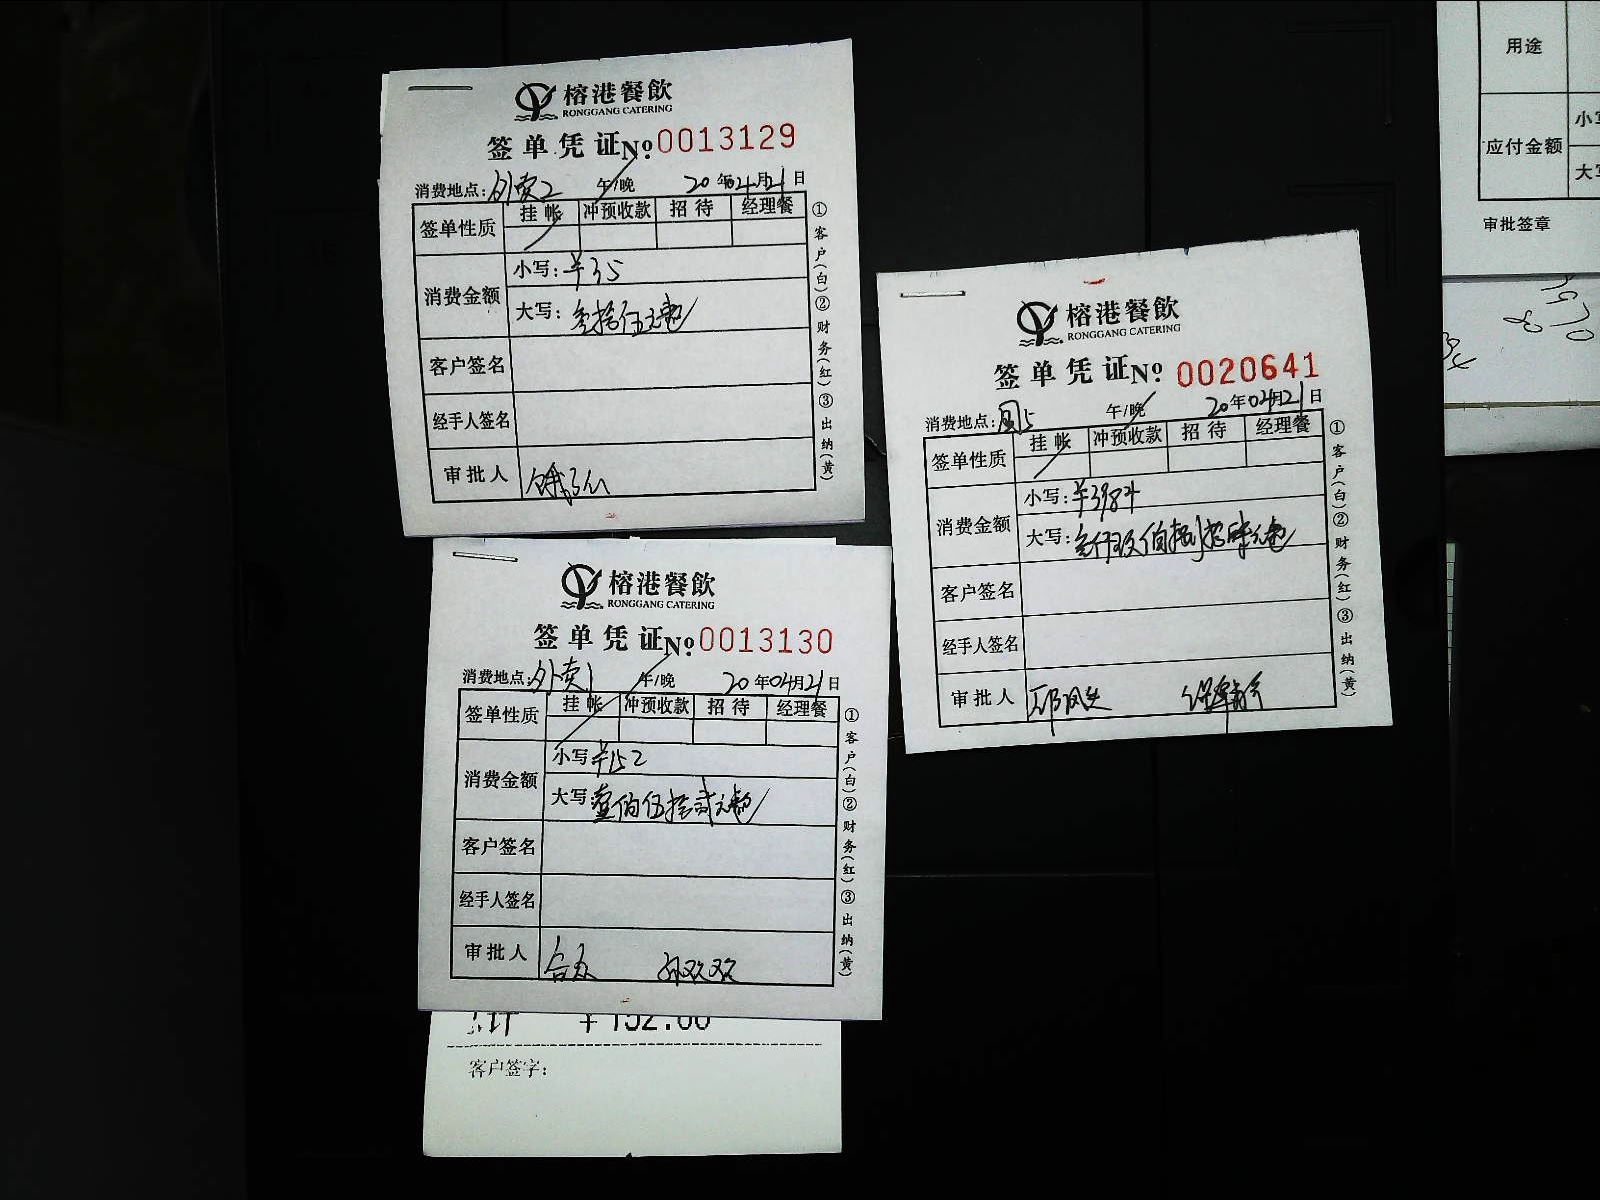 榕港餐飲
RONGGANG CATERING
签单凭证 № 0013129
消费地点: 外卖2 午/晚 20年04月21日
签单性质 挂帐 冲预收款 招待 经理餐
消费金额
小写: ¥35
大写: 叁拾伍元整
客户签名
经手人签名
审批人
①客户(白)②财务(红)③出纳(黄)
榕港餐飲
RONGGANG CATERING
签单凭证 № 0020641
消费地点: 凤5 午/晚 20年04月21日
签单性质 挂帐 冲预收款 招待 经理餐
消费金额
小写: ¥3984
大写: 叁仟玖佰捌拾肆元整
客户签名
经手人签名
审批人
①客户(白)②财务(红)③出纳(黄)
榕港餐飲
RONGGANG CATERING
签单凭证 № 0013130
消费地点: 外卖1 午/晚 20年04月21日
签单性质 挂帐 冲预收款 招待 经理餐
消费金额
小写 ¥152
大写 壹佰伍拾贰元整
客户签名
经手人签名
审批人 孙双双
①客户(白)②财务(红)③出纳(黄)
¥152.00
客户签字:
用途
应付金额
小写
大写
审批签章